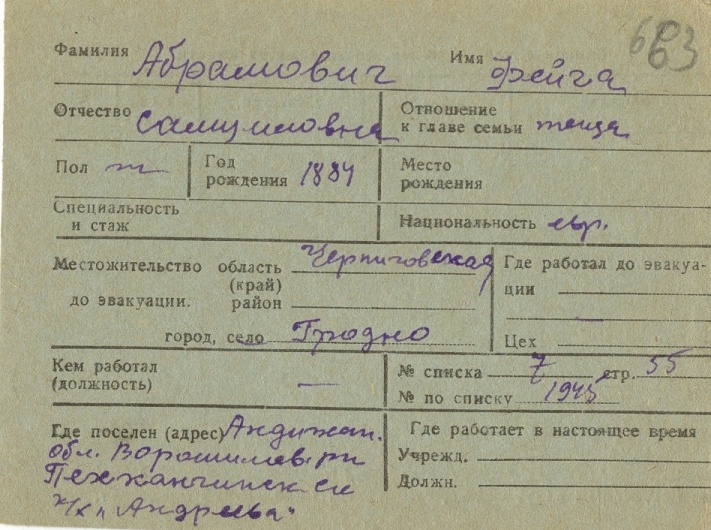 663
Фамилия Абрамович Имя Фейга
Отчество Самуиловна Отношение
к главе семьи теща
Пол ж Год
рождения 1884 Место
рождения
Специальность
и стаж Национальность евр.
Местожительство область Черниговская Где работал до эвакуа-
(край) ции
до эвакуации. район
город, село Гродно Цех
Кем работал
(должность) — № списка 7 стр. 55
№ по списку 1945
Где поселен (адрес) Андижан. Где работает в настоящее время
обл. Ворошилов. рн Учрежд.
с/с Должн.
к/х п Андреева"